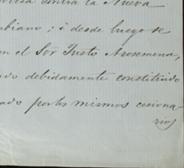 contra la Nueva
mbiano; ó desde luego se
en el Sor Justo Arosemena,
ado debidamente constituido
ado por los mismos cesiona-
rios